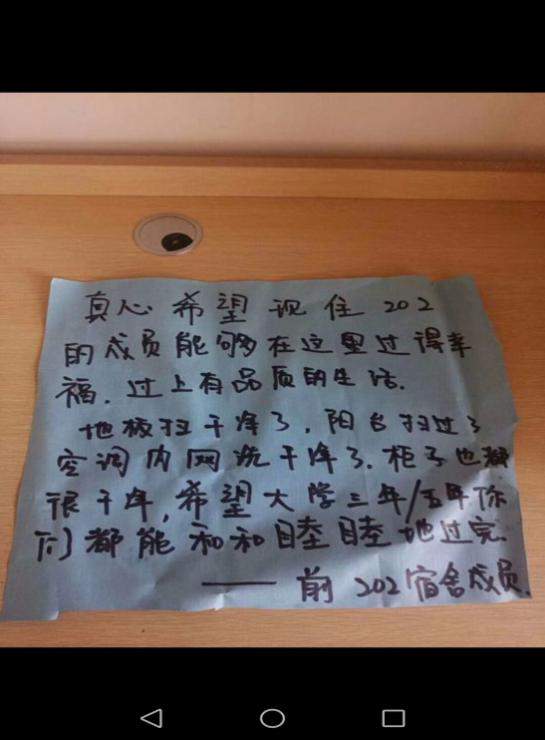 真心希望现住202
的成员能够在这里过得幸
福.过上有品质的生活.
地板扫干净了,阳台扫过了
空调内网洗干净了.柜子也都
很干净,希望大学三年/五年你
们都能和和睦睦地过完.
—— 前202宿舍成员.